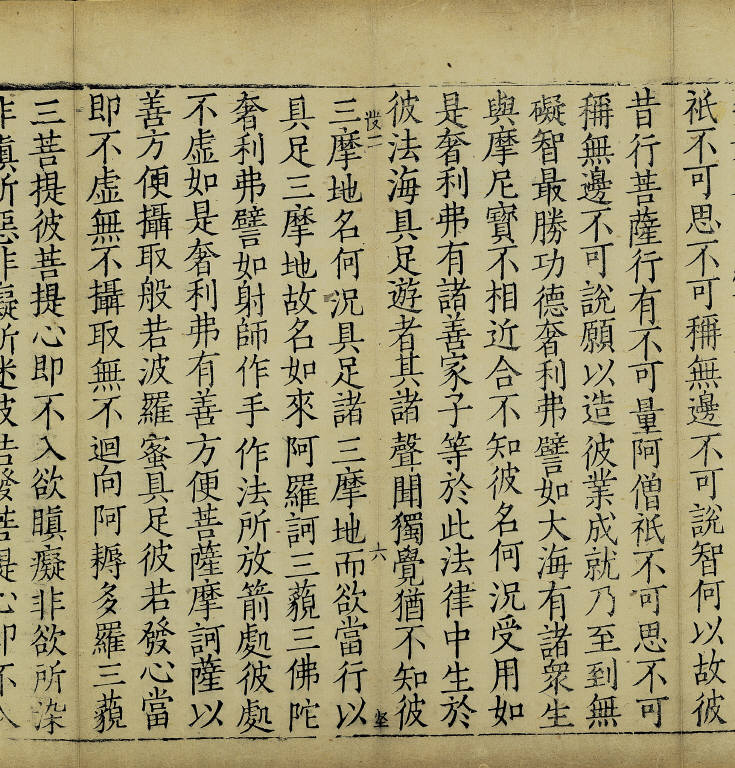 祇不可思不可稱無邊不可說智何以故彼
昔行菩薩行有不可量阿僧祇不可思不可
稱無邊不可說願以造彼業成就乃至到無
礙智最勝功德奢利弗譬如大海有諸衆生
與摩尼寶不相近合不知彼名何況受用如
是奢利弗有諸善家子等於此法律中生於
彼法海具足遊者其諸聲聞獨覺猶不知彼
六
三摩地名何況具足諸三摩地而欲當行以
具足三摩地故名如來阿羅訶三藐三佛陀
奢利弗譬如射師作手作法所放箭處彼處
不虛如是奢利弗有善方便菩薩摩訶薩以
善方便攝取般若波羅蜜具足彼若發心當
即不虛無不攝取無不迴向阿耨多羅三藐
三菩提彼菩提心即不入欲瞋癡非欲所染
非瞋所惡非癡所迷彼若發菩提心即不入